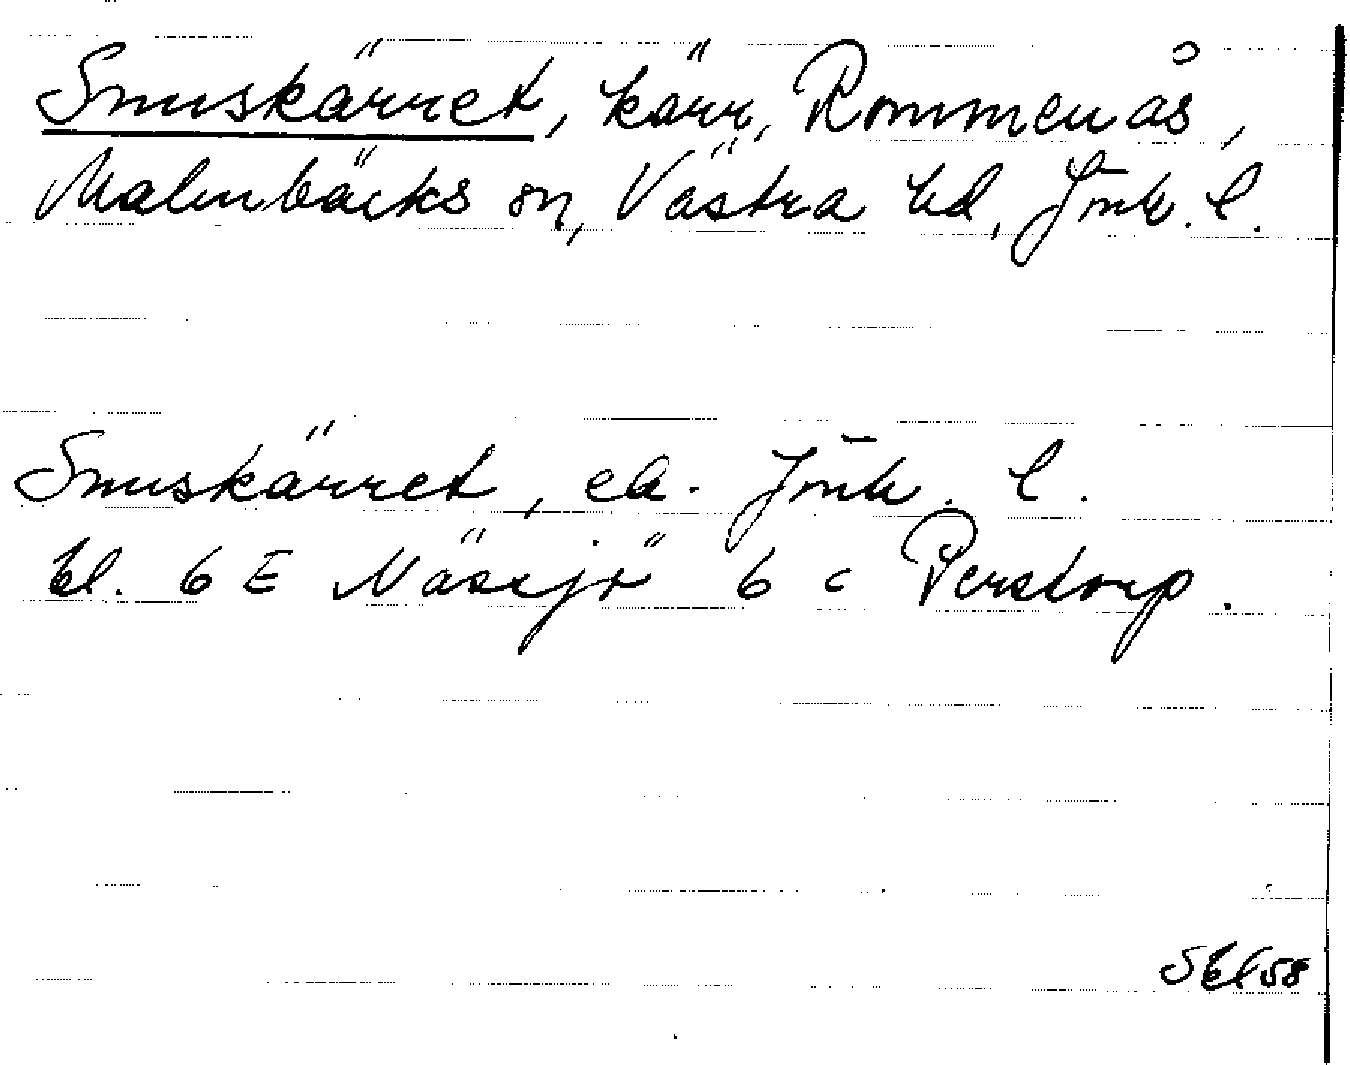 Snuskärret, kärr, Rommenås,
Malmbäcks sn, Västra hd, Jönk. l.
Snuskärret, ek. Jönk. l.
bl. 6 E Nässjö 6 c Perstorp.
Skl 58